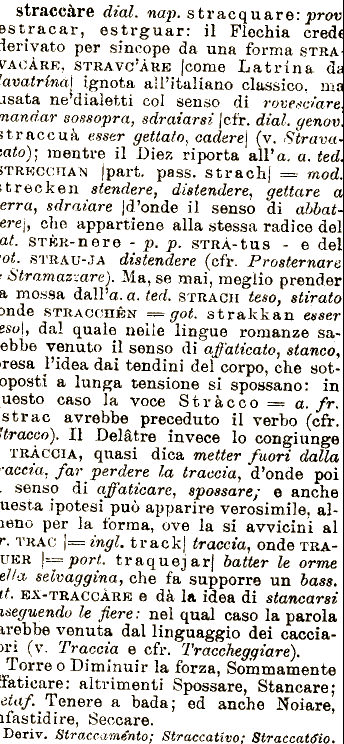 straccàre dial. nap. stracquare: prov
estracar, estrguar: il Flechia crede
derivato per sincope da una forma STRA-
VACÀRE, STRAVC'ÀRE |come Latrína da
lavatrína| ignota all'italiano classico, ma
usata ne' dialetti col senso di rovesciare,
mandar sossopra, sdraiarsi |cfr. dial. genov.
straccuà esser gettato, cadere| (v. Strava-
cato); mentre il Diez riporta all'a. a. ted.
STRECCHAN |part. pass. strach| = mod.
strecken stendere, distendere, gettare a
erra, sdraiare |d'onde il senso di abbat-
ere|, che appartiene alla stessa radice del
at. STÈR-nere - p. p. STRÀ-tus - e del
got. STRAU-JA distendere (cfr. Prosternare
e Stramazzare). Ma, se mai, meglio prender
a mossa dall'a. a. ted. STRACH teso, stirato
onde STRACCHÊN = got. strakkan esser
eso|, dal quale nelle lingue romanze sa-
ebbe venuto il senso di affaticato, stanco,
resa l'idea dai tendini del corpo, che sot-
oposti a lunga tensione si spossano: in
uesto caso la voce Stràcco = a. fr.
strac avrebbe preceduto il verbo (cfr.
Stracco). Il Delâtre invece lo congiunge
TRÀCCIA, quasi dica metter fuori dalla
raccia, far perdere la traccia, d'onde poi
l senso di affaticare, spossare; e anche
uesta ipotesi può apparire verosimile, al-
neno per la forma, ove la si avvicini al
r. TRAC |= ingl. track| traccia, onde TRA-
UER |= port. traquejar| batter le orme
ella selvaggina, che fa supporre un bass.
at. EX-TRACCÀRE e dà la idea di stancarsi
nseguendo le fiere: nel qual caso la parola
arebbe venuta dal linguaggio dei caccia-
ori (v. Traccia e cfr. Traccheggiare).
Torre o Diminuir la forza, Sommamente
ffaticare: altrimenti Spossare, Stancare;
etaf. Tenere a bada; ed anche Noiare,
nfastidire, Seccare.
Deriv. Straccaménto; Straccativo; Straccatóio.